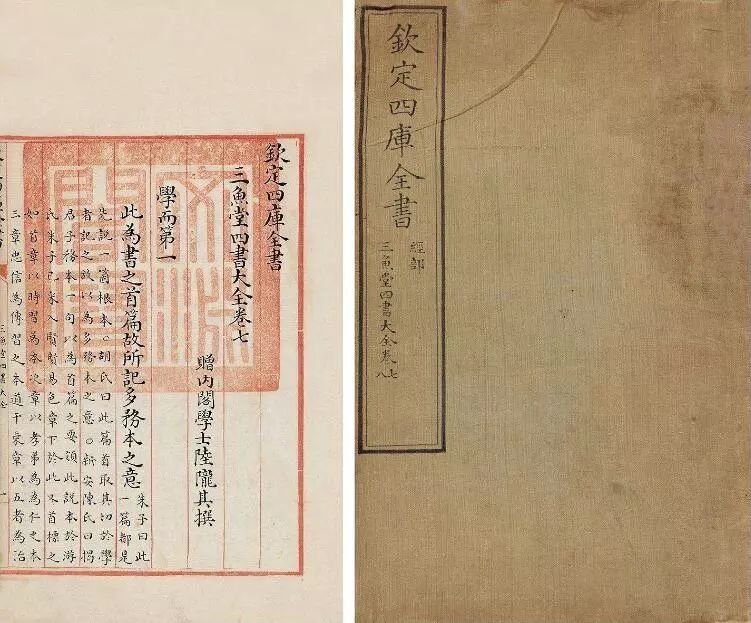 欽定四庫全書
經部
三魚堂四書大全卷七八
欽定四庫全書
三魚堂四書大全卷七
贈内閣學士陸隴其撰
學而第一
此為書之首篇故所記多務本之意
朱子曰此
一篇都是
先說一箇根本。胡氏曰此篇首取其切於學
者記之故以為多務本之意。新安陳氏曰揭
君子務本一句以為首篇之要領此說本於游
氏朱子已采入賢賢易色章下於此又首標之
如首章以時習為本次章以孝弟為為仁之本
三章忠信為傳習之本道千乘章以五者為治
三魚堂四書大全